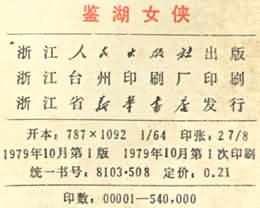 鉴湖女侠
浙江人民出版社出版
浙江台州印刷厂印刷
浙江省新华书店发行
开本：787×1092 1/64 印张：2 7/8
1979年10月第1版 1979年10月第1次印刷
统一书号：8103·508 定价：0.21
印数：00001—540,000